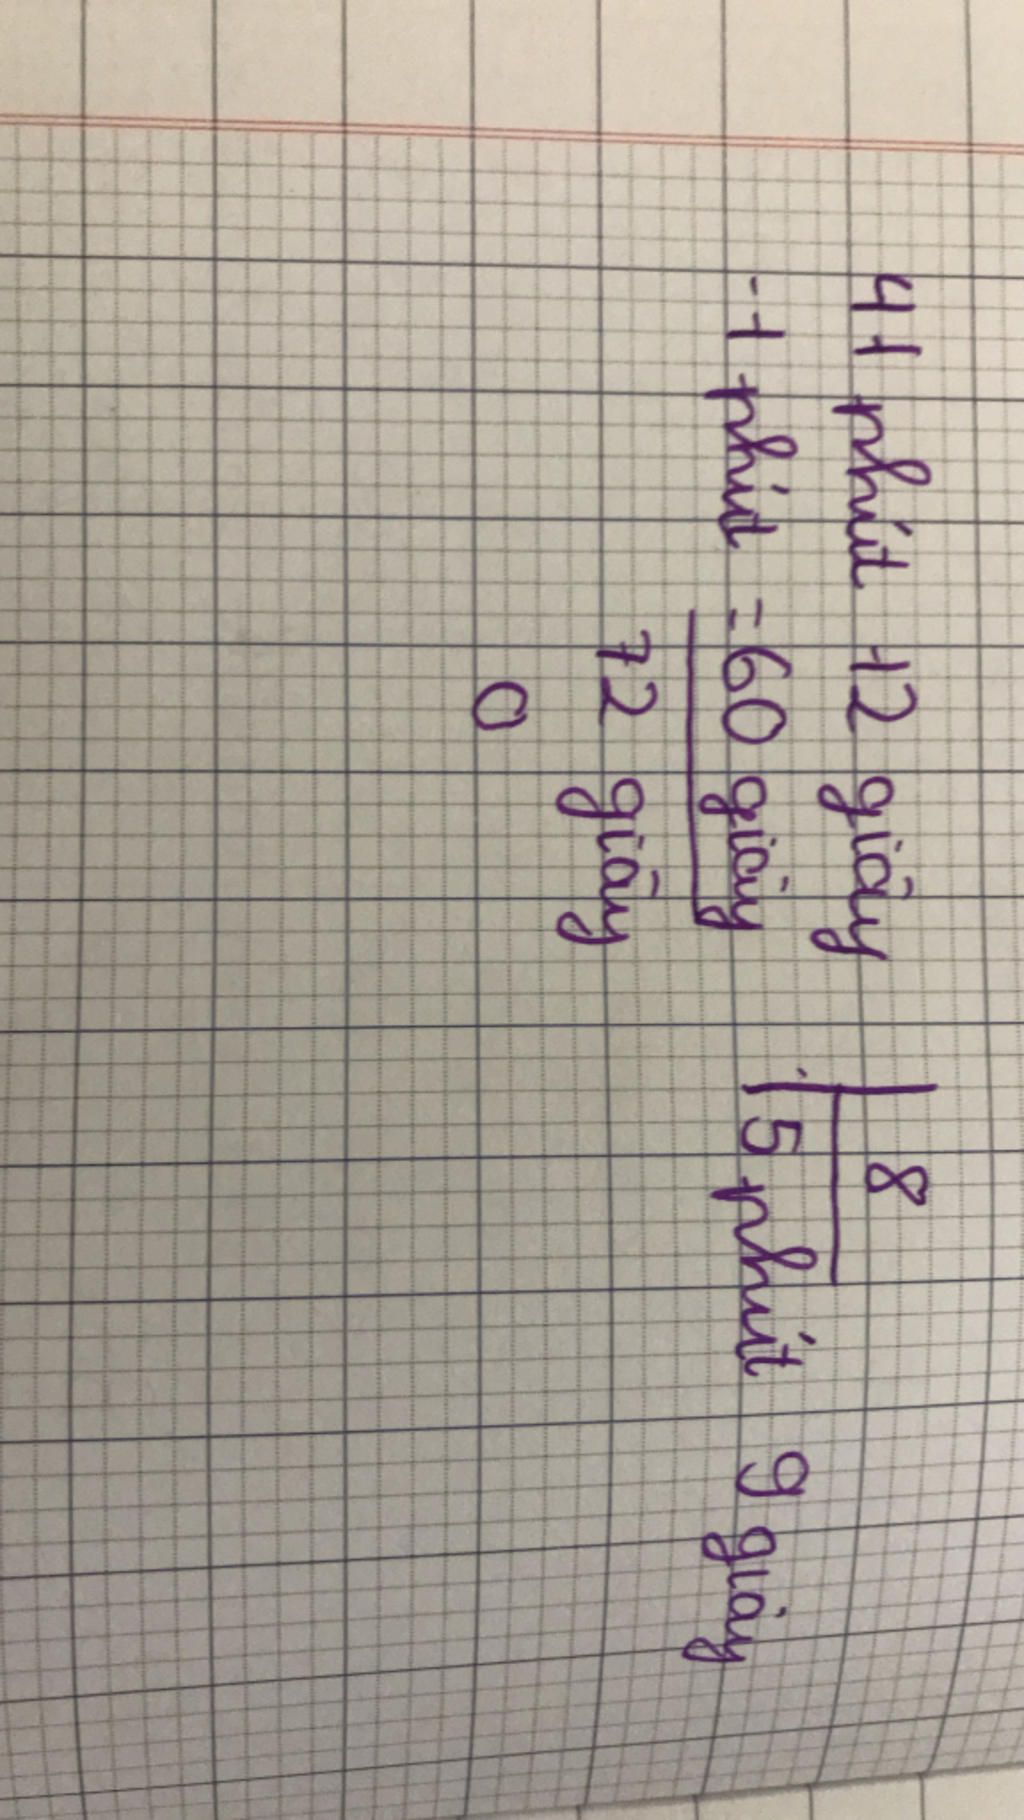 41 phút 12 giây | 8
1 phút = 60 giây | 5 phút 9 giây
72 giây
0